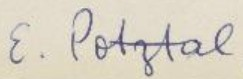 E. Potztal